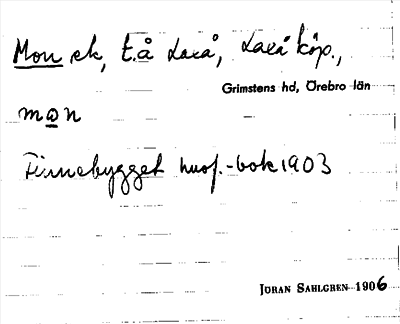 Mon ek, t.å Laxå, Laxå köp.,
Grimstens hd, Örebro län
mon
Finnebygget husf.-bok 1903
JÖRAN SAHLGREN 1906